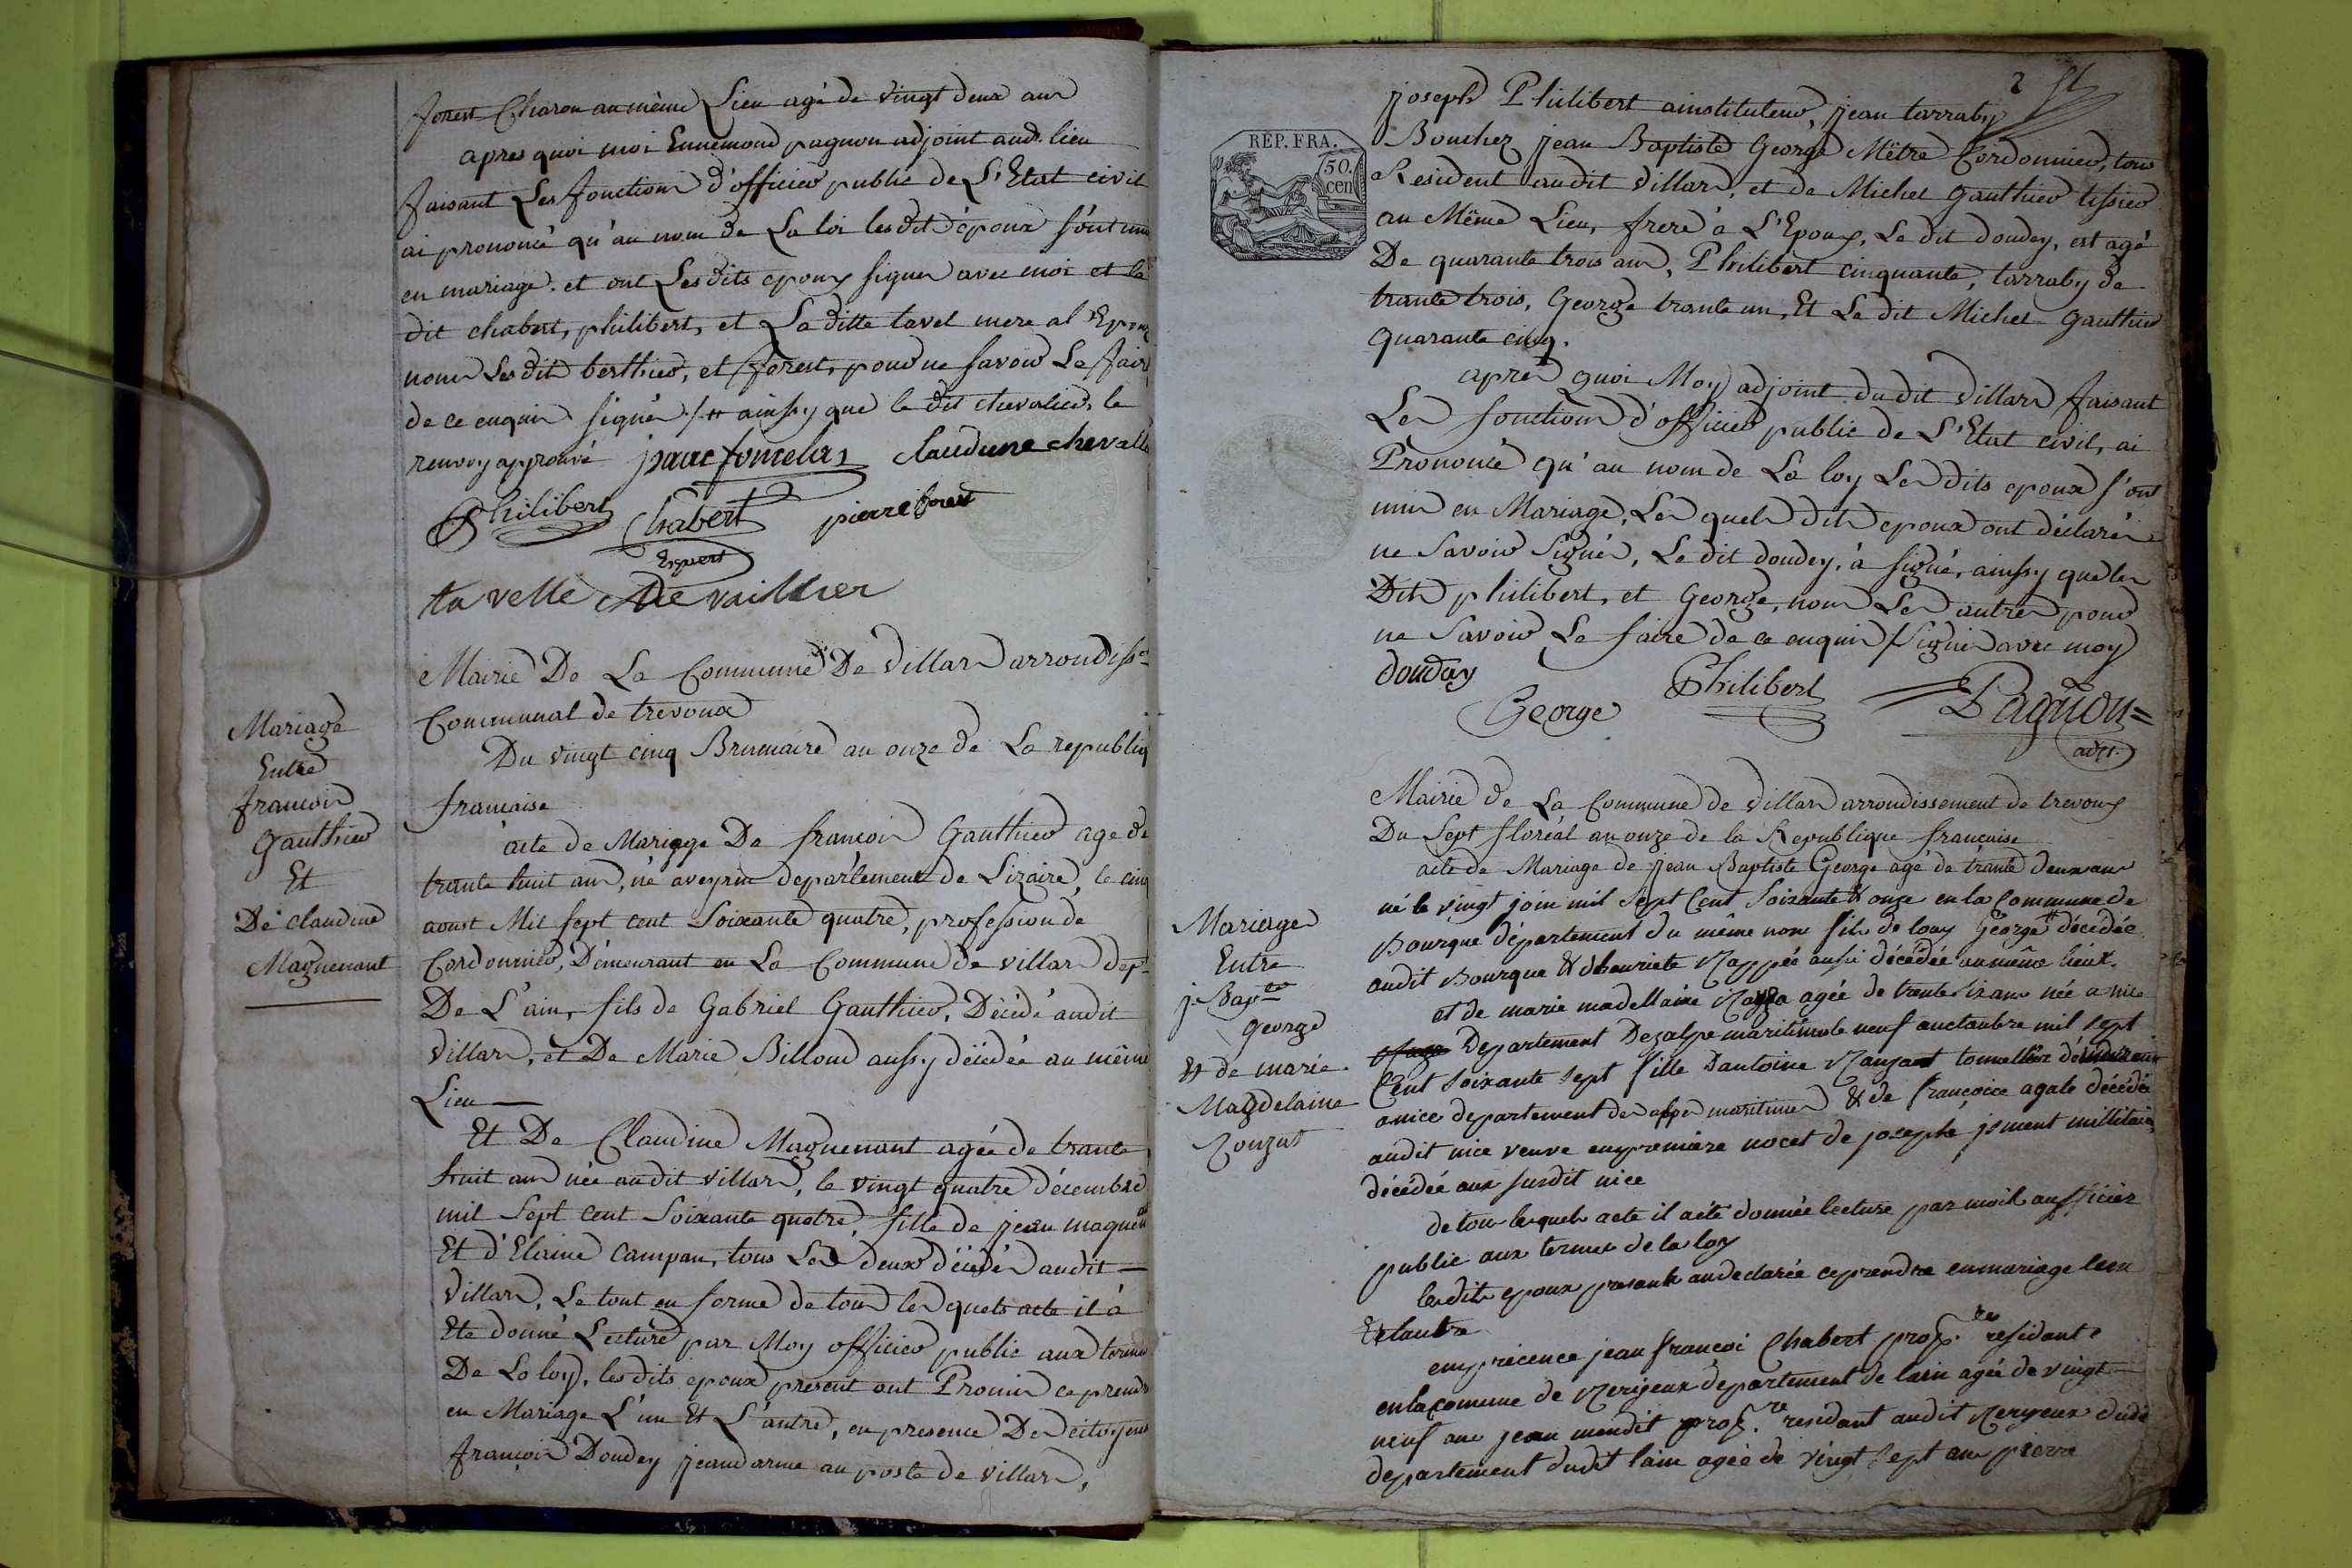 forest Charon au même Lieu agé de vingt deux ans
apres quoi moi Ennemond pagnon adjoint aud. lieu
faisant Les fonctions d'officier public de L'Etat civil
ai prononcé qu'au nom de La loi lesdits époux sont unis
en mariage. et ont Lesdits epoux signer avec moi et le
dit chabert, philibert, et La ditte tavel mere a l'Epoux
nom Lesdit berthier, et forest, pour ne savoir Le faire
de ce enquis signer /# ainssy que le dit chevalier, le
renvoy approuvé
claudine chevallier
Philibert
Chabert
pierre forest
Expert
tavelle Devaillier
Mairie De La Commune De Villars arrondisst
Communal de trevoux
Du vingt cinq Brumaire an onze de La republiq
francaise
Mariage
Entre
francois
Gauthier
Et
De claudine
Magnenant
acte de Mariage De francois Gauthier age de
trante huit ans, né aveyrin departement de Lizaire, le cinq
aoust Mil sept cent Soixante quatre, profession de
Cordonnier, Demeurant en La Commune de villars dept
De L'ain, fils de Gabriel Gauthier, Décédé audit
Villars, et De Marie Billoud aussy décédée au même
Lieu
Et De Claudine Magnenant agée de trante
huit ans née audit villars, le vingt quatre décembre
mil Sept cent Soixante quatre, fille de jean magnenant
Et d'Elaine Campan, tous Les deux décédés audit
Villars, Le tout en forme de tous les quels acte il à
Ete donné Lecture par Moy officier public aux termes
De La loy, lesdits époux present ont Promis ce prendre
en Mariage L'un Et L'autre, en presence Des citoyens
françois Doudey jeandarme au poste de villars,
2
joseph Philibert ainstituteur, jean tarraby
Boucher jean Baptiste George Mêtre Cordonnier, tous
Resident audit Villars, et de Michel Gauthier tissier
au Même Lieu, frere à L'Epoux, Le dit doudey, est agé
De quarante trois ans, Philibert cinquante, tarraby de
trante trois, George trante un, Et Le dit Michel Gauthier
quarante cinq.
REP. FRA.
50.
cen
après quoi Moy adjoint du dit Villars faisant
Les fonctions d'officier public de L'Etat civil, ai
Prononcé qu'au nom de La loy Les dits epoux s'ont
unis en Mariage, Les quels dits epoux ont déclarés
ne Savoir Signér, Le dit doudey, à signé, ainssy que les
Dits philibert, et George, nom Les autres pour
ne Savoir Le faire de ce enquis / signés avec moy
douday
George
Philibert
Pagnon
adjt.
Mairie de La Commune de Villars arrondissement de trevoux
Du Sept floréal an onze de la Republique française
Mariage
Entre
j. Bapte
george
Et de marie
Magdelaine
acte de Mariage de jean Baptiste George agé de trante deux ans
né le vingt join mil Sept Cent Soixante & onze en la Commune de
Bourque département du même nom fils de louy George # décédée
audit Bourque & dhenriete Nappée aussi décédée au même lieux.
et de marie madellaine agée de trente six ans née a nice
Departement Dezalpe maritime le neuf auctaubre mil sept
Cent soixante sept fille Dantoine tonnellier
anice departement des alpes maritimes & de françoice agate décédée
audit nice veuve enpremiere nocet de josephe jsment millitaire,
décédée aux susdit nice
de tous lesquels acte il aété donnée lecture par moi aufficier
public aux termes de la loy
lesdits epoux presants audeclarée ceprendre enmariage lun
& lautre
enprécence jean françoi Chabert prop.re residant
enlacomune de Nerizeux departement de lain agée de vingt
neuf ans jean mendit prop.re residant audit Neryeux dudi
departement dudit lain agée de vingt sept ans pierre